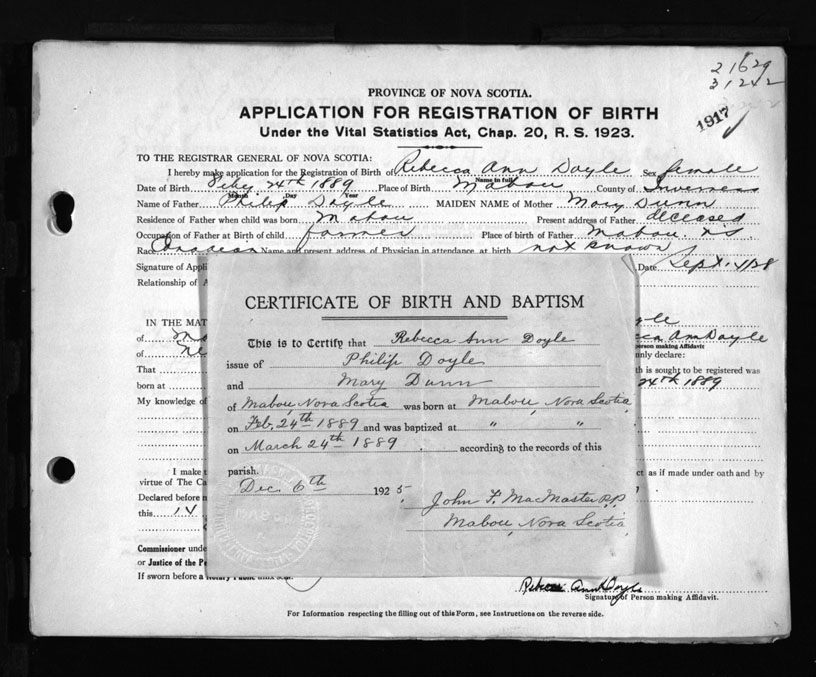 21629
31242
1917
PROVINCE OF NOVA SCOTIA.
APPLICATION FOR REGISTRATION OF BIRTH
Under the Vital Statistics Act, Chap. 20, R. S. 1923.
TO THE REGISTRAR GENERAL OF NOVA SCOTIA:
I hereby make application for the Registration of Birth of Rebecca Ann Doyle Sex female
Name in full
Date of Birth Feby 24th 1889 Place of Birth Mabou County of Inverness
Month Day Year
Name of Father Philip Doyle MAIDEN NAME of Mother Mary Dunn
Residence of Father when child was born Mabou Present address of Father deceased
Occupation of Father at Birth of child farmer Place of birth of Father Mabou N.S.
Race Canadian Name and present address of Physician in attendance at birth not known
Signature of Appli Date Sept.
Relationship of A
IN THE MAT
of
of
That
born at
My knowledge of
I make t
virtue of The Ca
Declared before n
this 14
Commissioner unde
or Justice of the Pe
If sworn before a Notary Public
yle
cca Ann Doyle
erson making Affidavit
nly declare:
th is sought to be registered was
24th 1889
ct as if made under oath and by
CERTIFICATE OF BIRTH AND BAPTISM
This is to Certify that Rebecca Ann Doyle
issue of Philip Doyle
and Mary Dunn
of Mabou, Nova Scotia was born at Mabou, Nova Scotia,
on Feb. 24th 1889 and was baptized at " "
on March 24th 1889. according to the records of this
parish.
Dec. 6th 1925.
John F. MacMaster P.P.
Mabou, Nova Scotia
Rebecca Ann Doyle
Signature of Person making Affidavit.
For Information respecting the filling out of this Form, see Instructions on the reverse side.